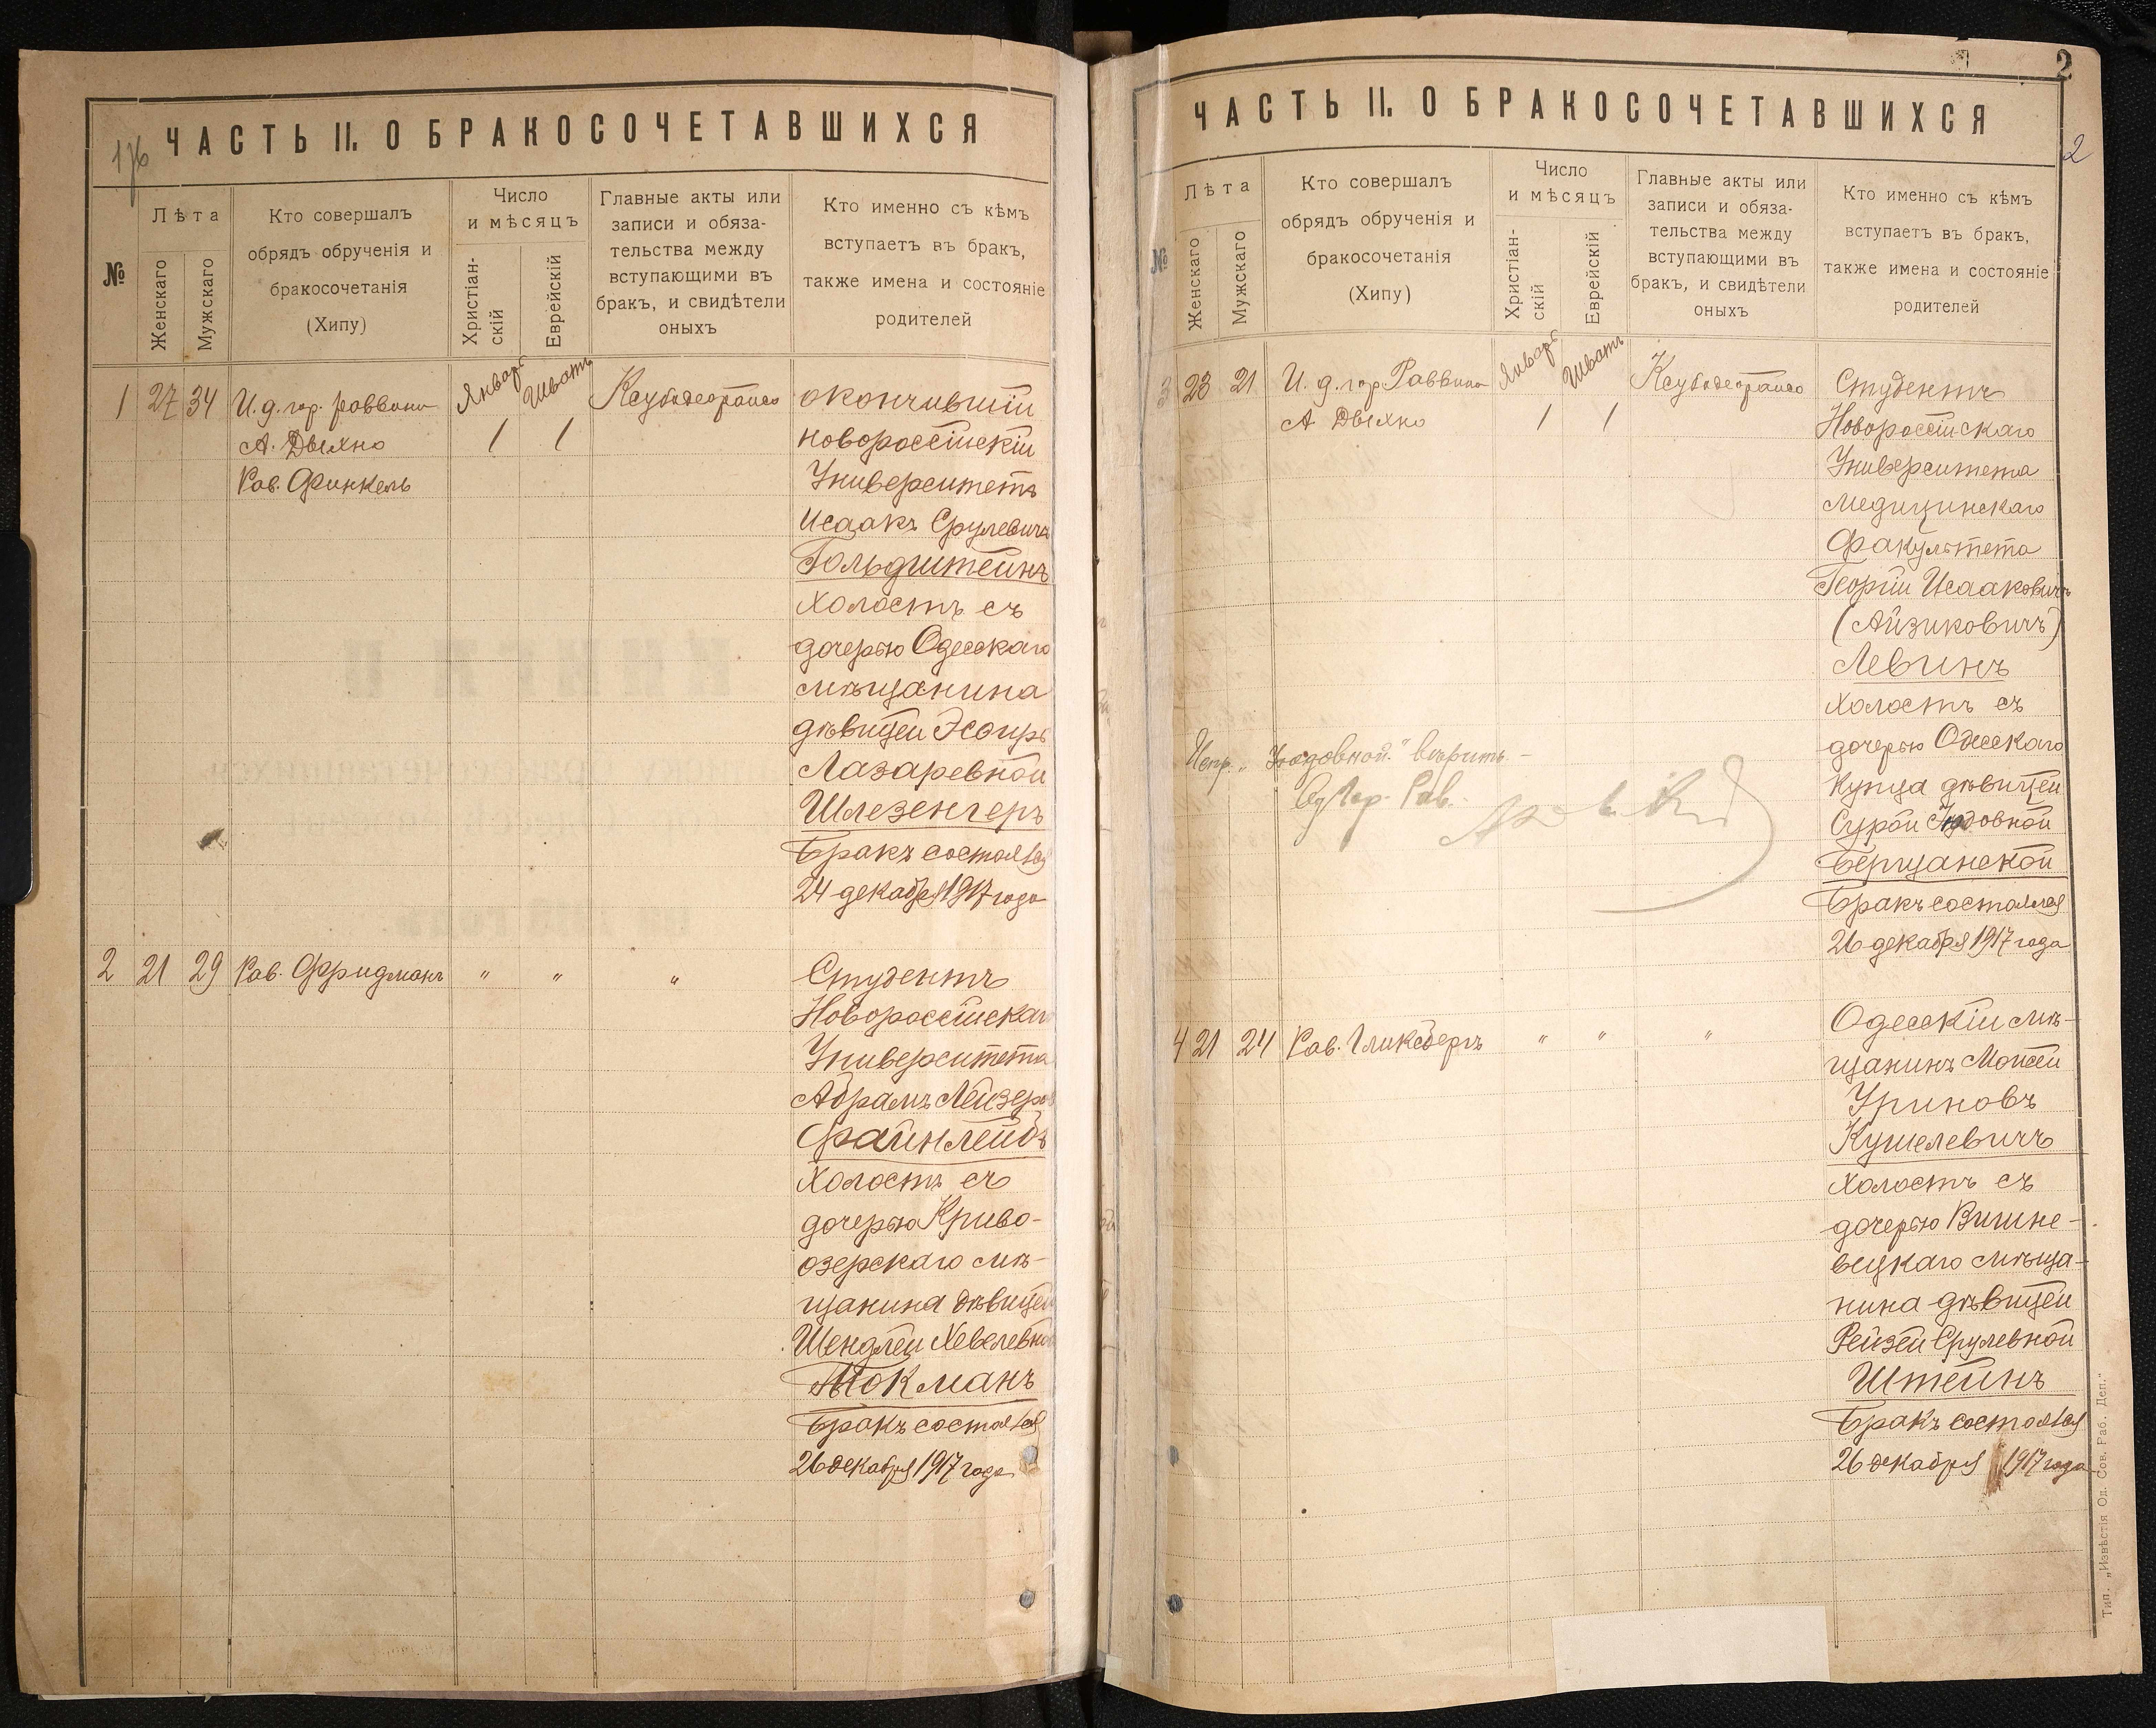 ЧАСТЬ II. О БРАКОСОЧЕТАВШИХСЯ
№
Лѣта
Женскаго
Мужскаго
Кто совершалъ
обрядъ обрученія и
бракосочетанія
(Хипу)
Число
и мѣсяцъ
Христіан-
скій
Еврейскій
Главные акты или
записи и обяза-
тельства между
вступающими въ
бракъ, и свидѣтели
оныхъ
Кто именно съ кѣмъ
вступаетъ въ бракъ,
также имена и состояніе
родителей
1
27
34
И. д. гор. раввина
А. Дыхно
Рав. Финкель
Январь
1
Шватъ
1
окончившій
новороссійскій
Университетъ
Исаакъ Срулевичъ
Гольдштейнъ
холостъ съ
дочерью Одесскаго
мѣщанина
дѣвицей Эсѳирь
Лазаревной
Шлезенгеръ
Бракъ состоялся
24 декабря 1917 года
2
21
29
Рав. Фридманъ
"
"
"
Студентъ
Новороссійскаго
Университета
Абрамъ Лейзеров
Файнлейбъ
холостъ съ
дочерью Криво-
озерскаго мѣ-
щанина дѣвицей
Шендлей Хевелевной
Токманъ
Бракъ состоялся
26 декабря 1917 года
2
2
ЧАСТЬ II. О БРАКОСОЧЕТАВШИХСЯ
№
Лѣта
Женскаго
Мужскаго
Кто совершалъ
обрядъ обрученія и
бракосочетанія
(Хипу)
Число
и мѣсяцъ
Христіан-
скій
Еврейскій
Главные акты или
записи и обяза-
тельства между
вступающими въ
бракъ, и свидѣтели
оныхъ
Кто именно съ кѣмъ
вступаетъ въ бракъ,
также имена и состояніе
родителей
3
23
21
И. д. гор. Раввина
А Дыхно
Январь
1
Шватъ
1
Студентъ
Новороссійскаго
Университета
медицинскаго
Факультета
Георгій Исааковичъ
(Айзиковичъ)
Левинъ
холостъ съ
дочерью Одесскаго
Купца дѣвицей
Сурой Іудовной
Берщанской
Бракъ состоялся
26 декабря 1917 года
Испр. „Іудовной" вѣрить -
Од Гор. Рав.
4
21
24
Рав. Гликсбергъ
"
"
"
Одесскій мѣ-
щанинъ Моисей
Уриновъ
Кушелевичъ
холостъ съ
дочерью Вишне-
вецкаго мѣща-
нина дѣвицей
Рейзей Срулевной
Штейнъ
Бракъ состоялся
26 декабря 1917 года
Тип. „Извѣстія Од. Сов. Раб. Деп."